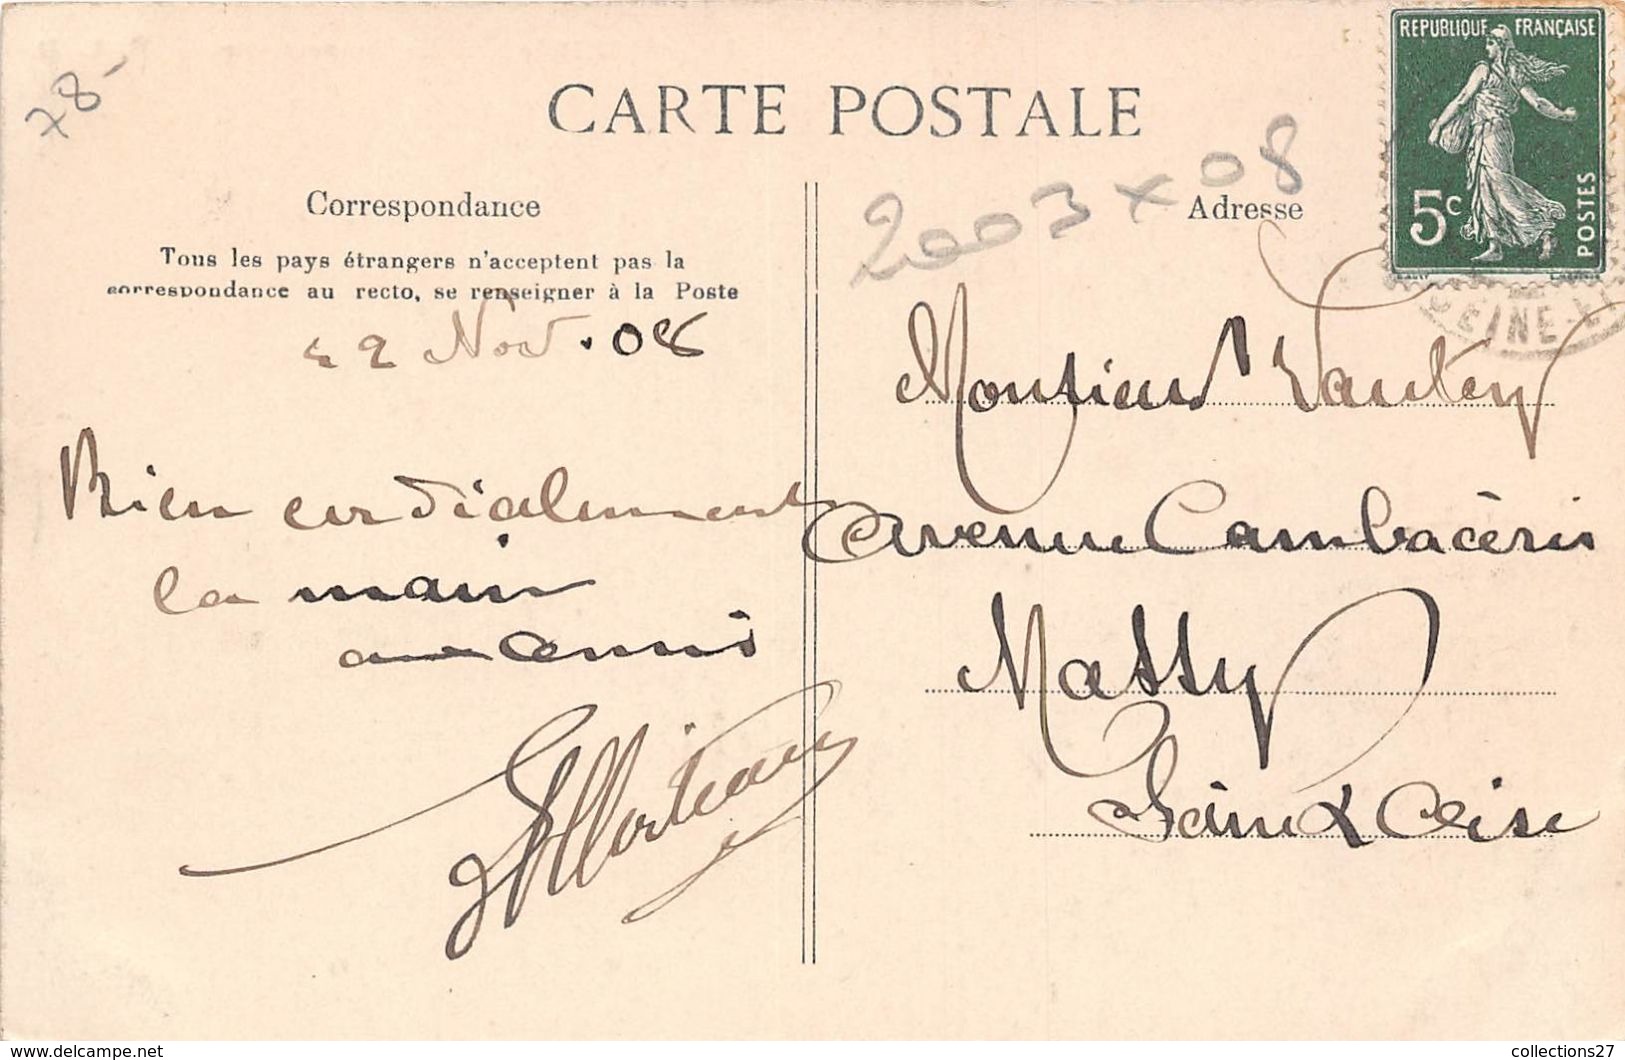 78-
CARTE POSTALE
REPUBLIQUE FRANÇAISE
5c
POSTES
2003 x 08
Correspondance
Adresse
Tous les pays étrangers n'acceptent pas la
correspondance au recto, se renseigner à la Poste
22 Nov. 08
Bien cordialement
la main
aux amis
Monsieur Vautey
Avenue Cambacérès
Massy
Seine & Oise
SEINE-ET
collections27